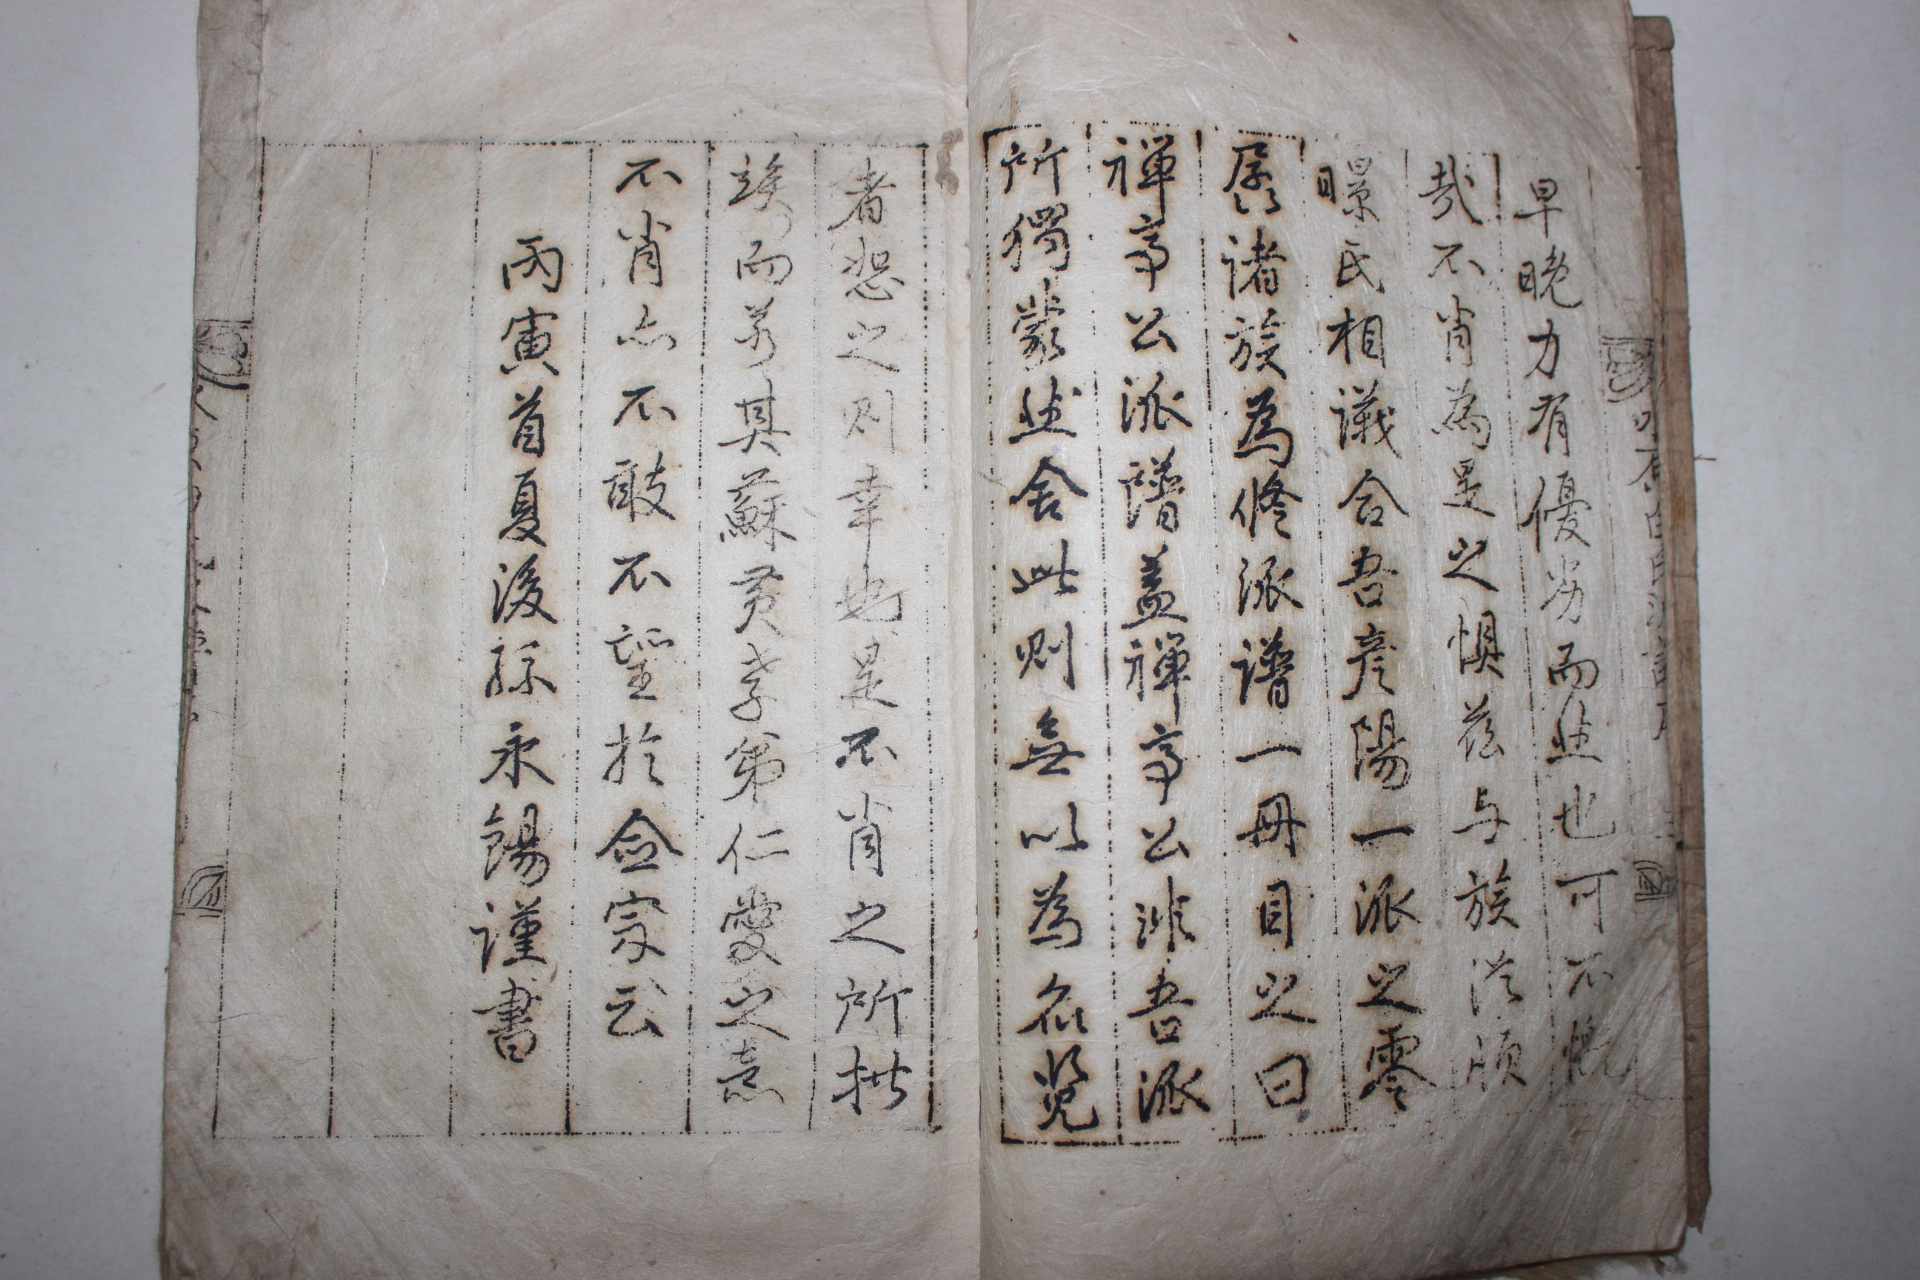 早晩力有優劣而然也可不慨
哉不肖為是之懼茲与族從順
暻氏相議合吾彦陽一派之零
孱諸族為修派譜一冊目之曰
禪亭公派譜盖禪亭公非吾派
所獨蒙然舍此則無以為名览
者恕之則幸也是不肖之所拱
竢而若其蘇黄孝弟仁愛之意
不肖亦不敢不望於僉宗云
丙寅首夏後孫永錫謹書